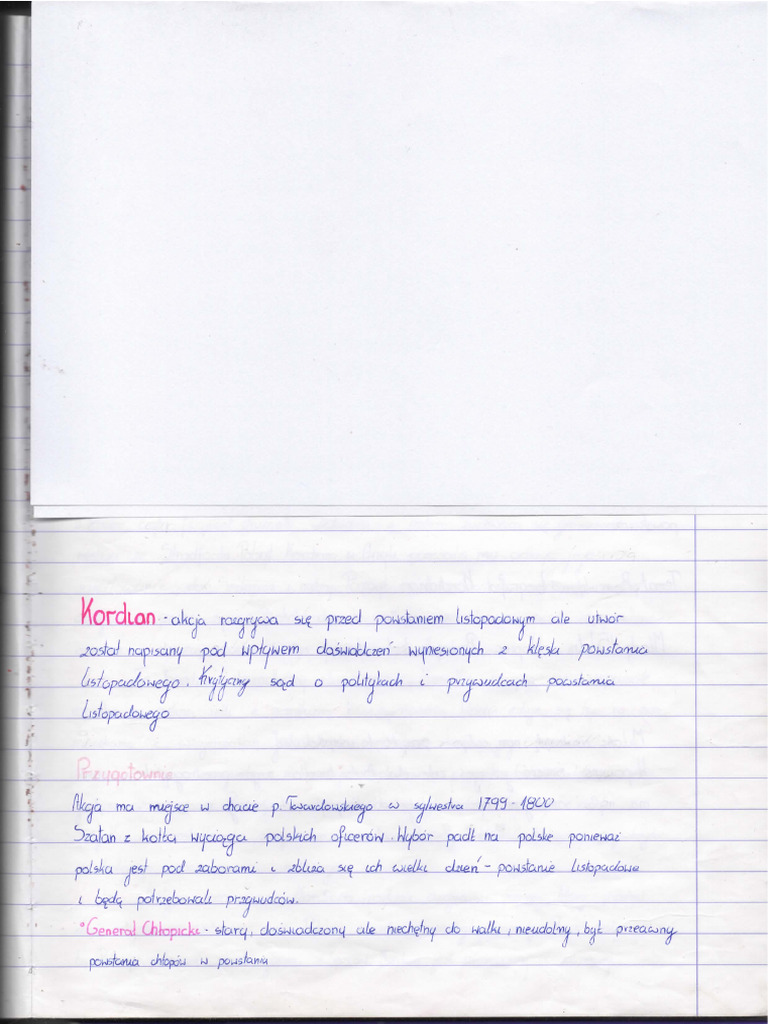 Kordian - akcja rozgrywa się przed powstaniem listopadowym ale utwór
został napisany pod wpływem doświadczeń wyniesionych z klęski powstania
listopadowego. Krytyczny sąd o politykach i przywudcach powstania
listopadowego
Przygotownie
Akcja ma miejsce w chacie p. Twardowskiego w sylwestra 1799-1800
Szatan z kotła wyciąga polskich oficerów. Wybór padł na polske ponieważ
polska jest pod zaborami i zbliża się ich wielki dzień - powstanie listopadowe
i będą potrzebowali przywudców.
• Generał Chłopicki - stary, doświadczony ale niechętny do walki, nieudolny, był przeciwny
powstania chłopów w powstaniu